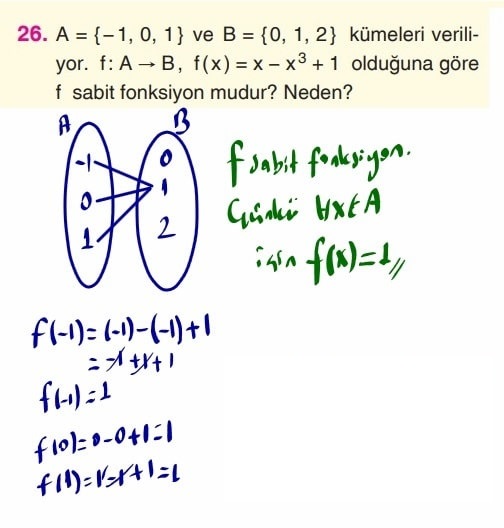 26. A = {−1, 0, 1} ve B = {0, 1, 2} kümeleri verili-
yor. f: A → B, f(x) = x − x³ + 1 olduğuna göre
f sabit fonksiyon mudur? Neden?
A B
-1
0
1
0
1
2
f sabit fonksiyon.
Çünkü ∀x∈A
için f(x)=1//
f(-1)=(-1)-(-1)+1
= -1+1+1
f(-1)=1
f(0)=0-0+1=1
f(1)=1-1+1=1